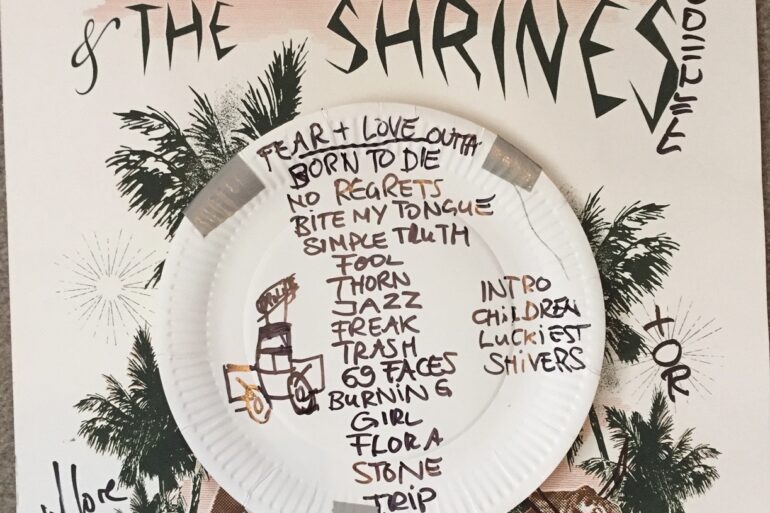 & THE SHRINES
FEAR + LOVE OUTTA
BORN TO DIE
NO REGRETS
BITE MY TONGUE
SIMPLE TRUTH
FOOL
THORN
JAZZ
FREAK
TRASH
69 FACES
BURNING
GIRL
FLORA
STONE
TRIP
INTRO
CHILDREN
LUCKIEST
SHIVERS
FOR